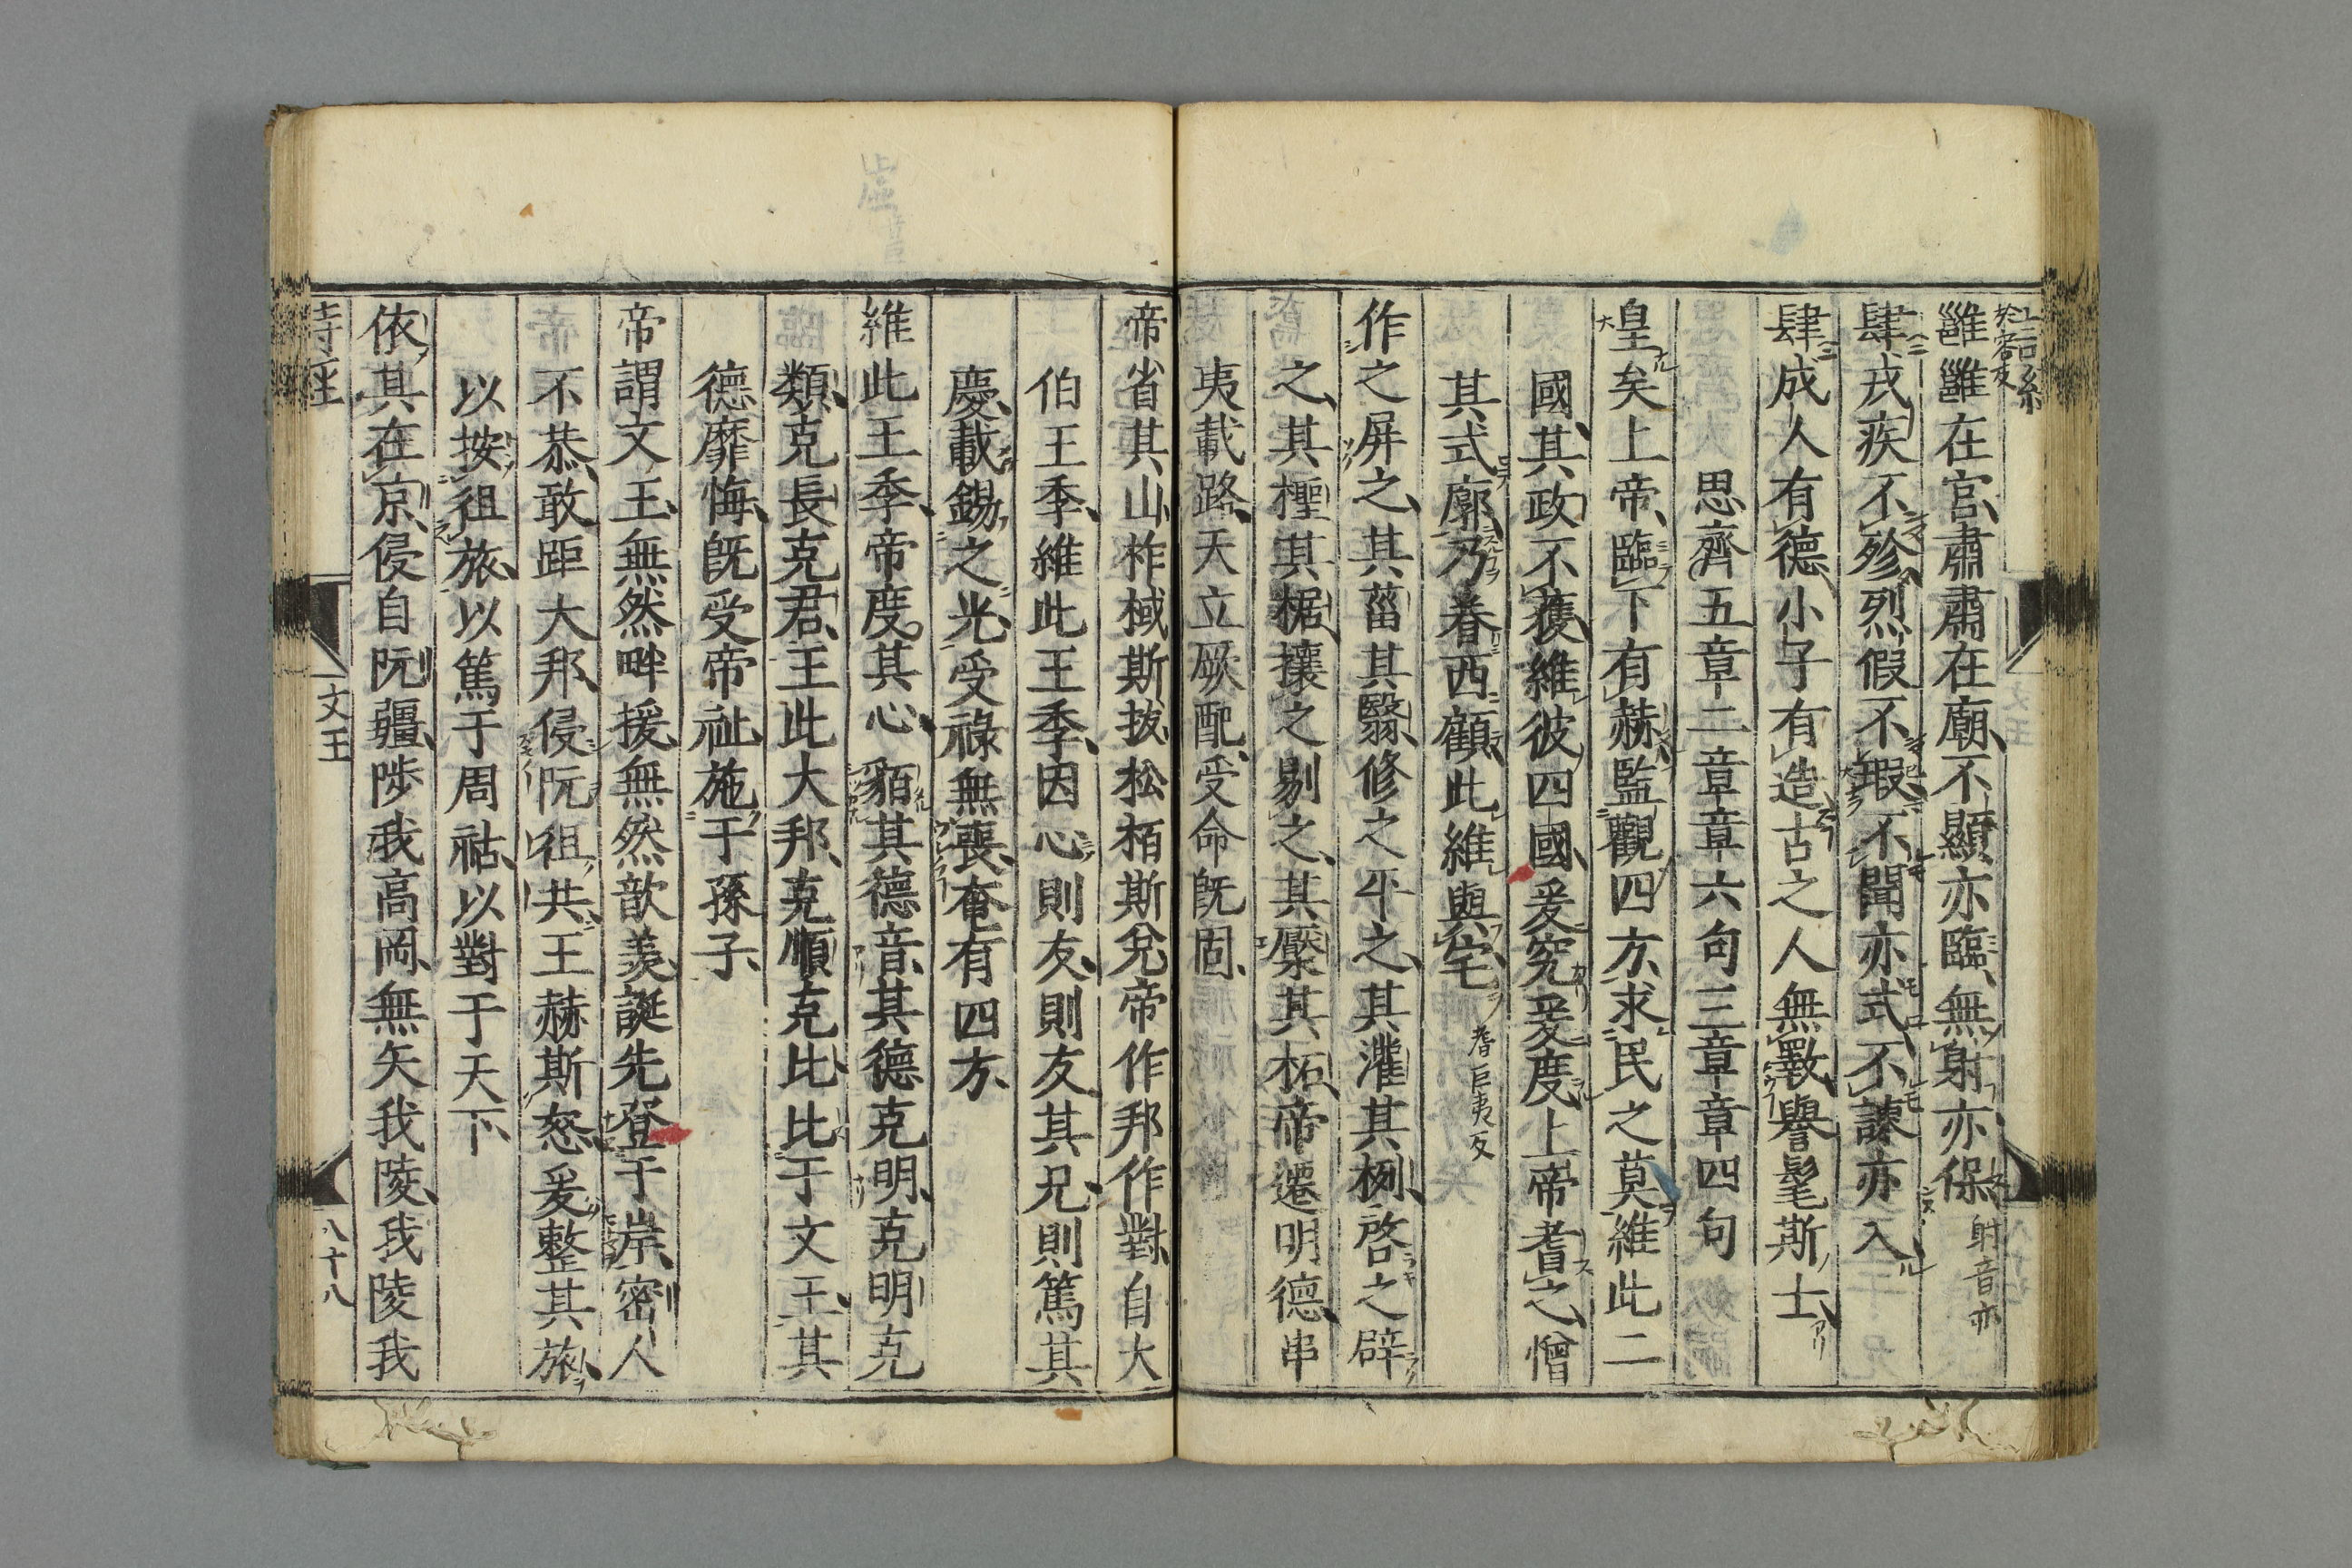 雝雝在宮肅肅在廟不顯亦臨無射亦保
射音亦
肆戎疾不殄烈假不瑕不聞亦式不諫亦入
肆成人有德小子有造古之人無斁譽髦斯士
思齊五章二章章六句三章章四句
皇矣上帝臨下有赫監觀四方求民之莫維此二
國其政不獲維彼四國爰究爰度上帝耆之憎
其式廓乃眷西顧此維與宅
耆巨夷反
作之屏之其菑其翳修之平之其灌其栵啓之辟
之其檉其椐攘之剔之其檿其柘帝遷明德串
夷載路天立厥配受命旣固
帝省其山柞棫斯拔松栢斯兌帝作邦作對自大
伯王季維此王季因心則友則友其兄則篤其
慶載錫之光受祿無喪奄有四方
維此王季帝度其心貊其德音其德克明克明克
類克長克君王此大邦克順克比比于文王其
德靡悔旣受帝祉施于孫子
帝謂文王無然畔援無然歆羨誕先登于岸密人
不恭敢距大邦侵阮徂共王赫斯怒爰整其旅
以按徂旅以篤于周祜以對于天下
依其在京侵自阮疆陟我高岡無矢我陵我陵我
文王
八十八